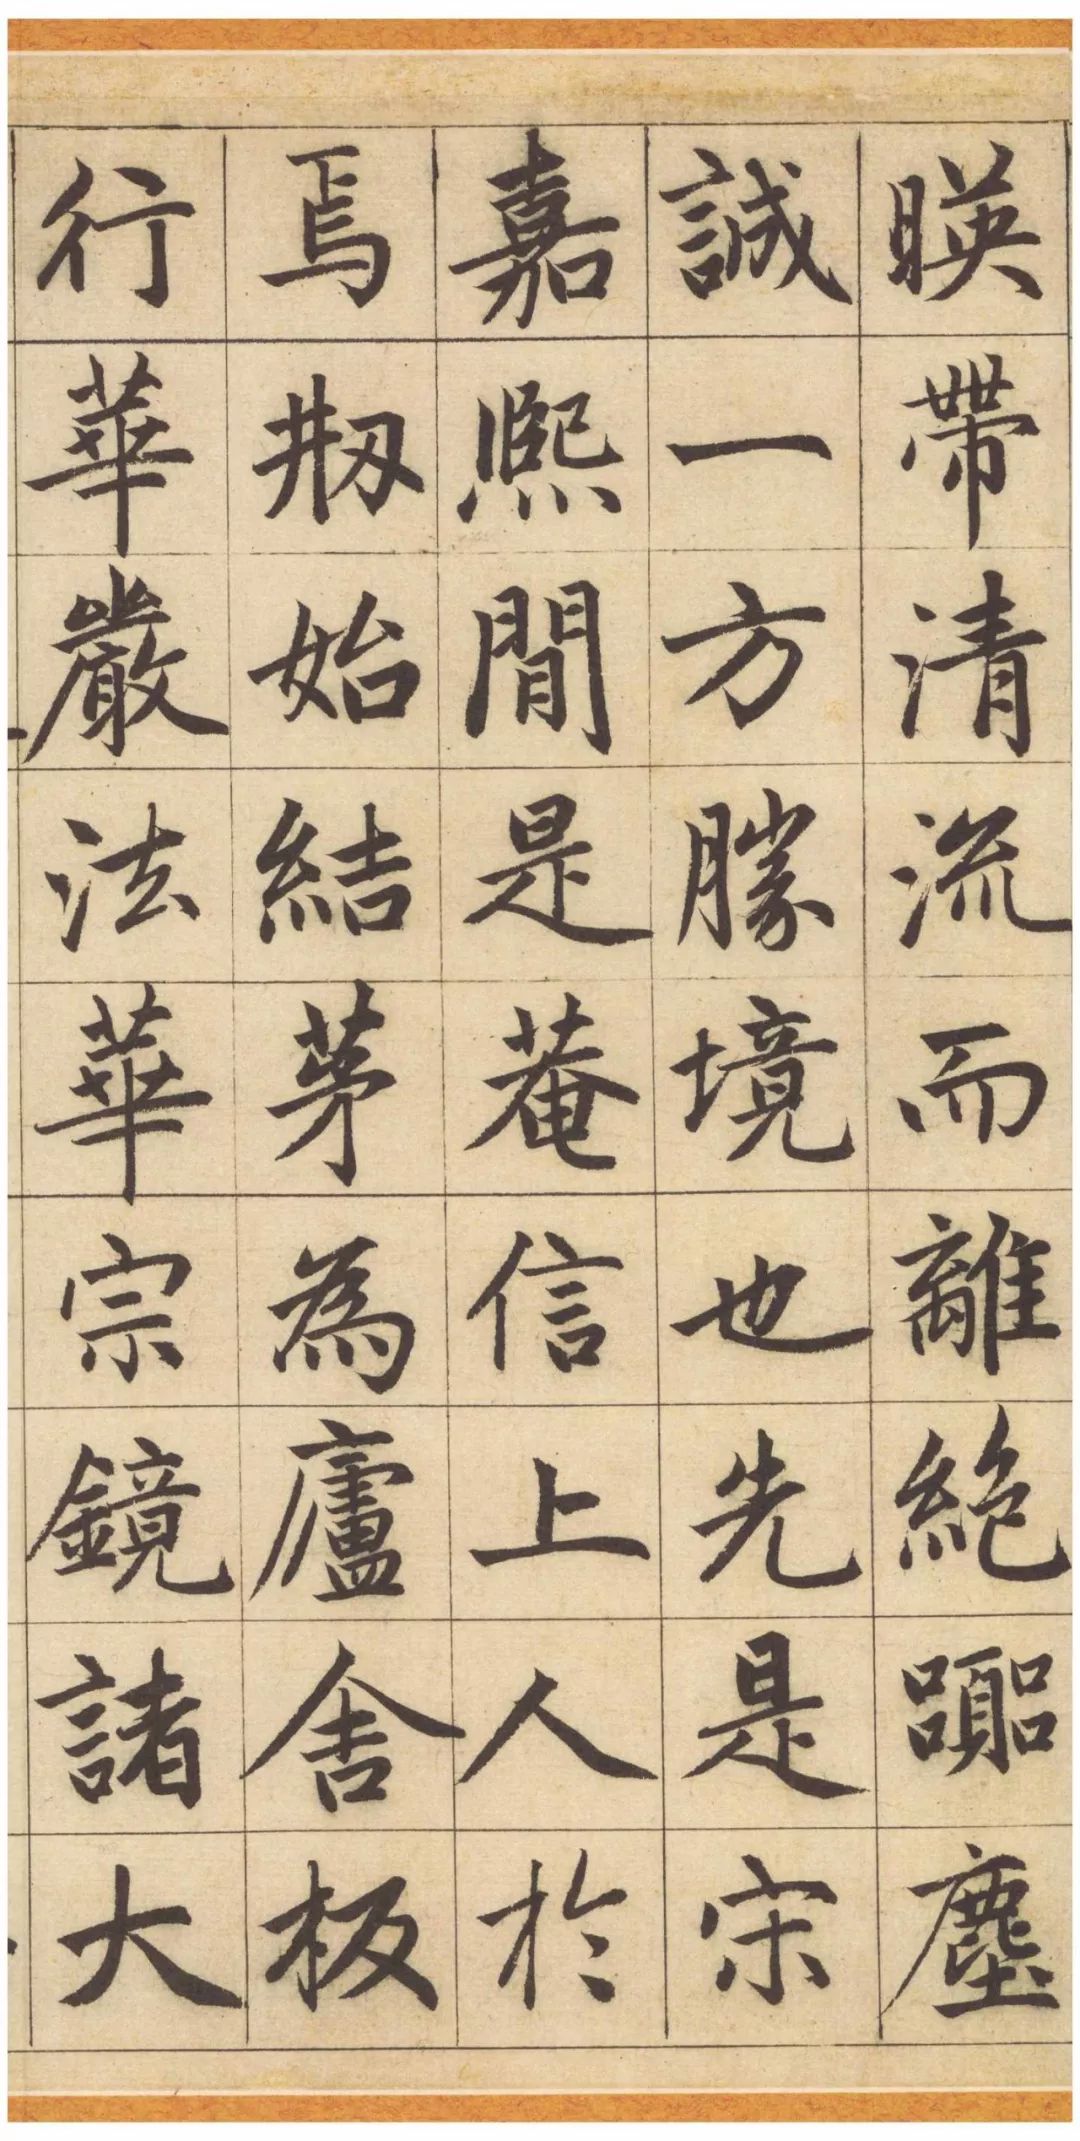 暎帶清流而離絶嚻塵
誠一方勝境也先是宋
嘉熈間是菴信上人於
焉剏始結茅為廬舍板
行華嚴法華宗鏡諸大